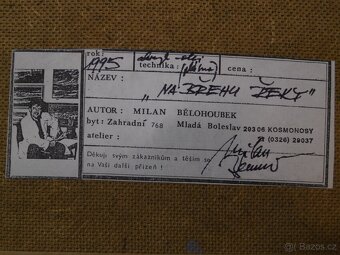 rok: 1995
technika: cena:
NÁZEV:
„NA BŘEHU ŘEKY"
AUTOR: MILAN BĚLOHOUBEK
byt: Zahradní 768 Mladá Boleslav 293 06 KOSMONOSY
atelier: (0326) 29037
Děkuji svým zákazníkům a těším se
na Vaši další přízeň !
Sbazoš.cz